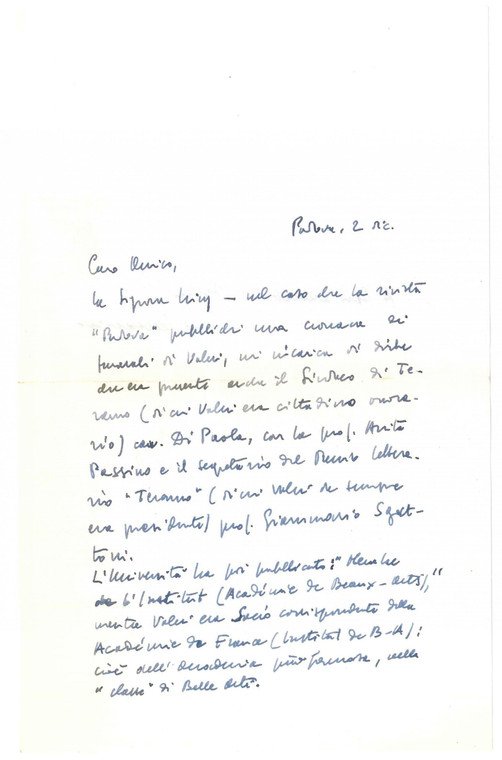 Padova, 2 dic.
Caro Enrico,
la Signora — nel caso che la rivista
"Padova" pubblichi una cronaca dei
funerali di Valeri, mi incarica di dirle
che era presente anche il Sindaco di Te-
ramo (di cui Valeri era cittadino onora-
rio) cav. Di Paola, con la prof. Anita
Passino e il segretario del Premio lettera-
rio "Teramo" (di cui Valeri da sempre
era presidente) prof. Giammario Sgat-
toni.
L'Università ha poi pubblicato: "Membre
de l'Institut (Académie de Beaux-Arts),"
mentre Valeri era Socio corrispondente della
Académie de France (Institut de B-A):
cioè dell'accademia più famosa, nella
"classe" di Belle Arti.